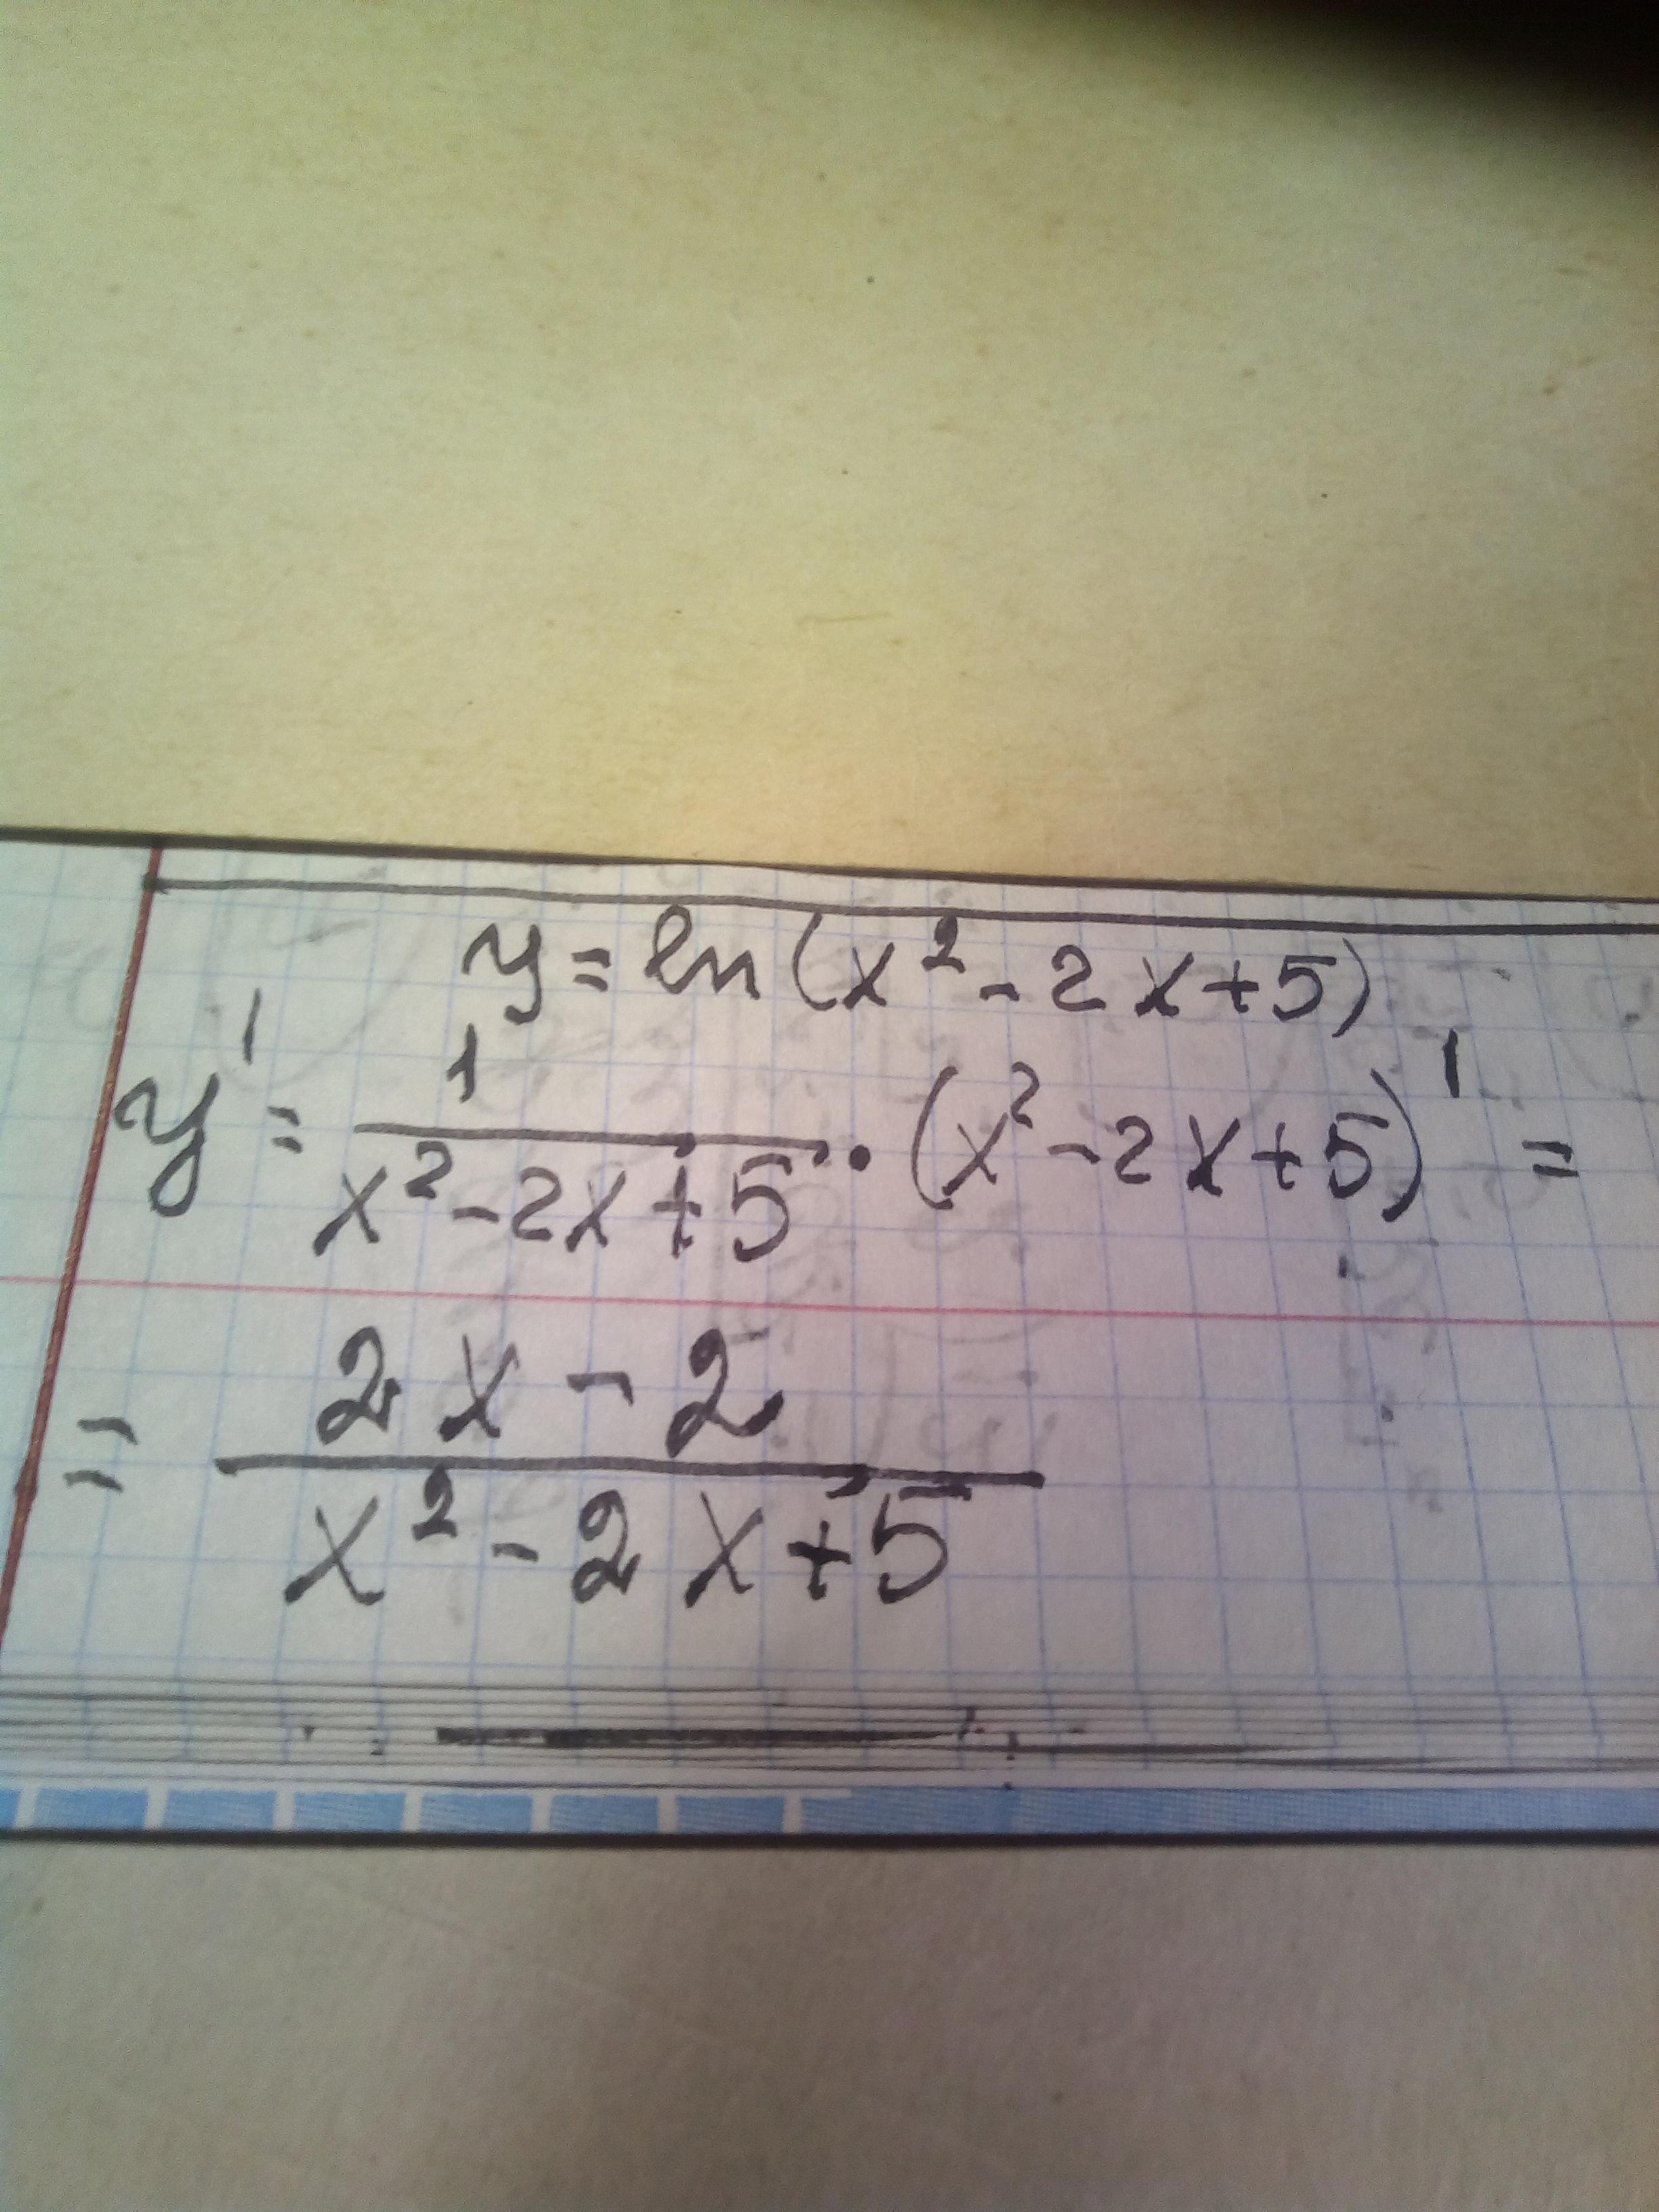 y = ln(x² - 2x + 5)
y' = 1/(x² - 2x + 5) · (x² - 2x + 5)' =
= (2x - 2)/(x² - 2x + 5)